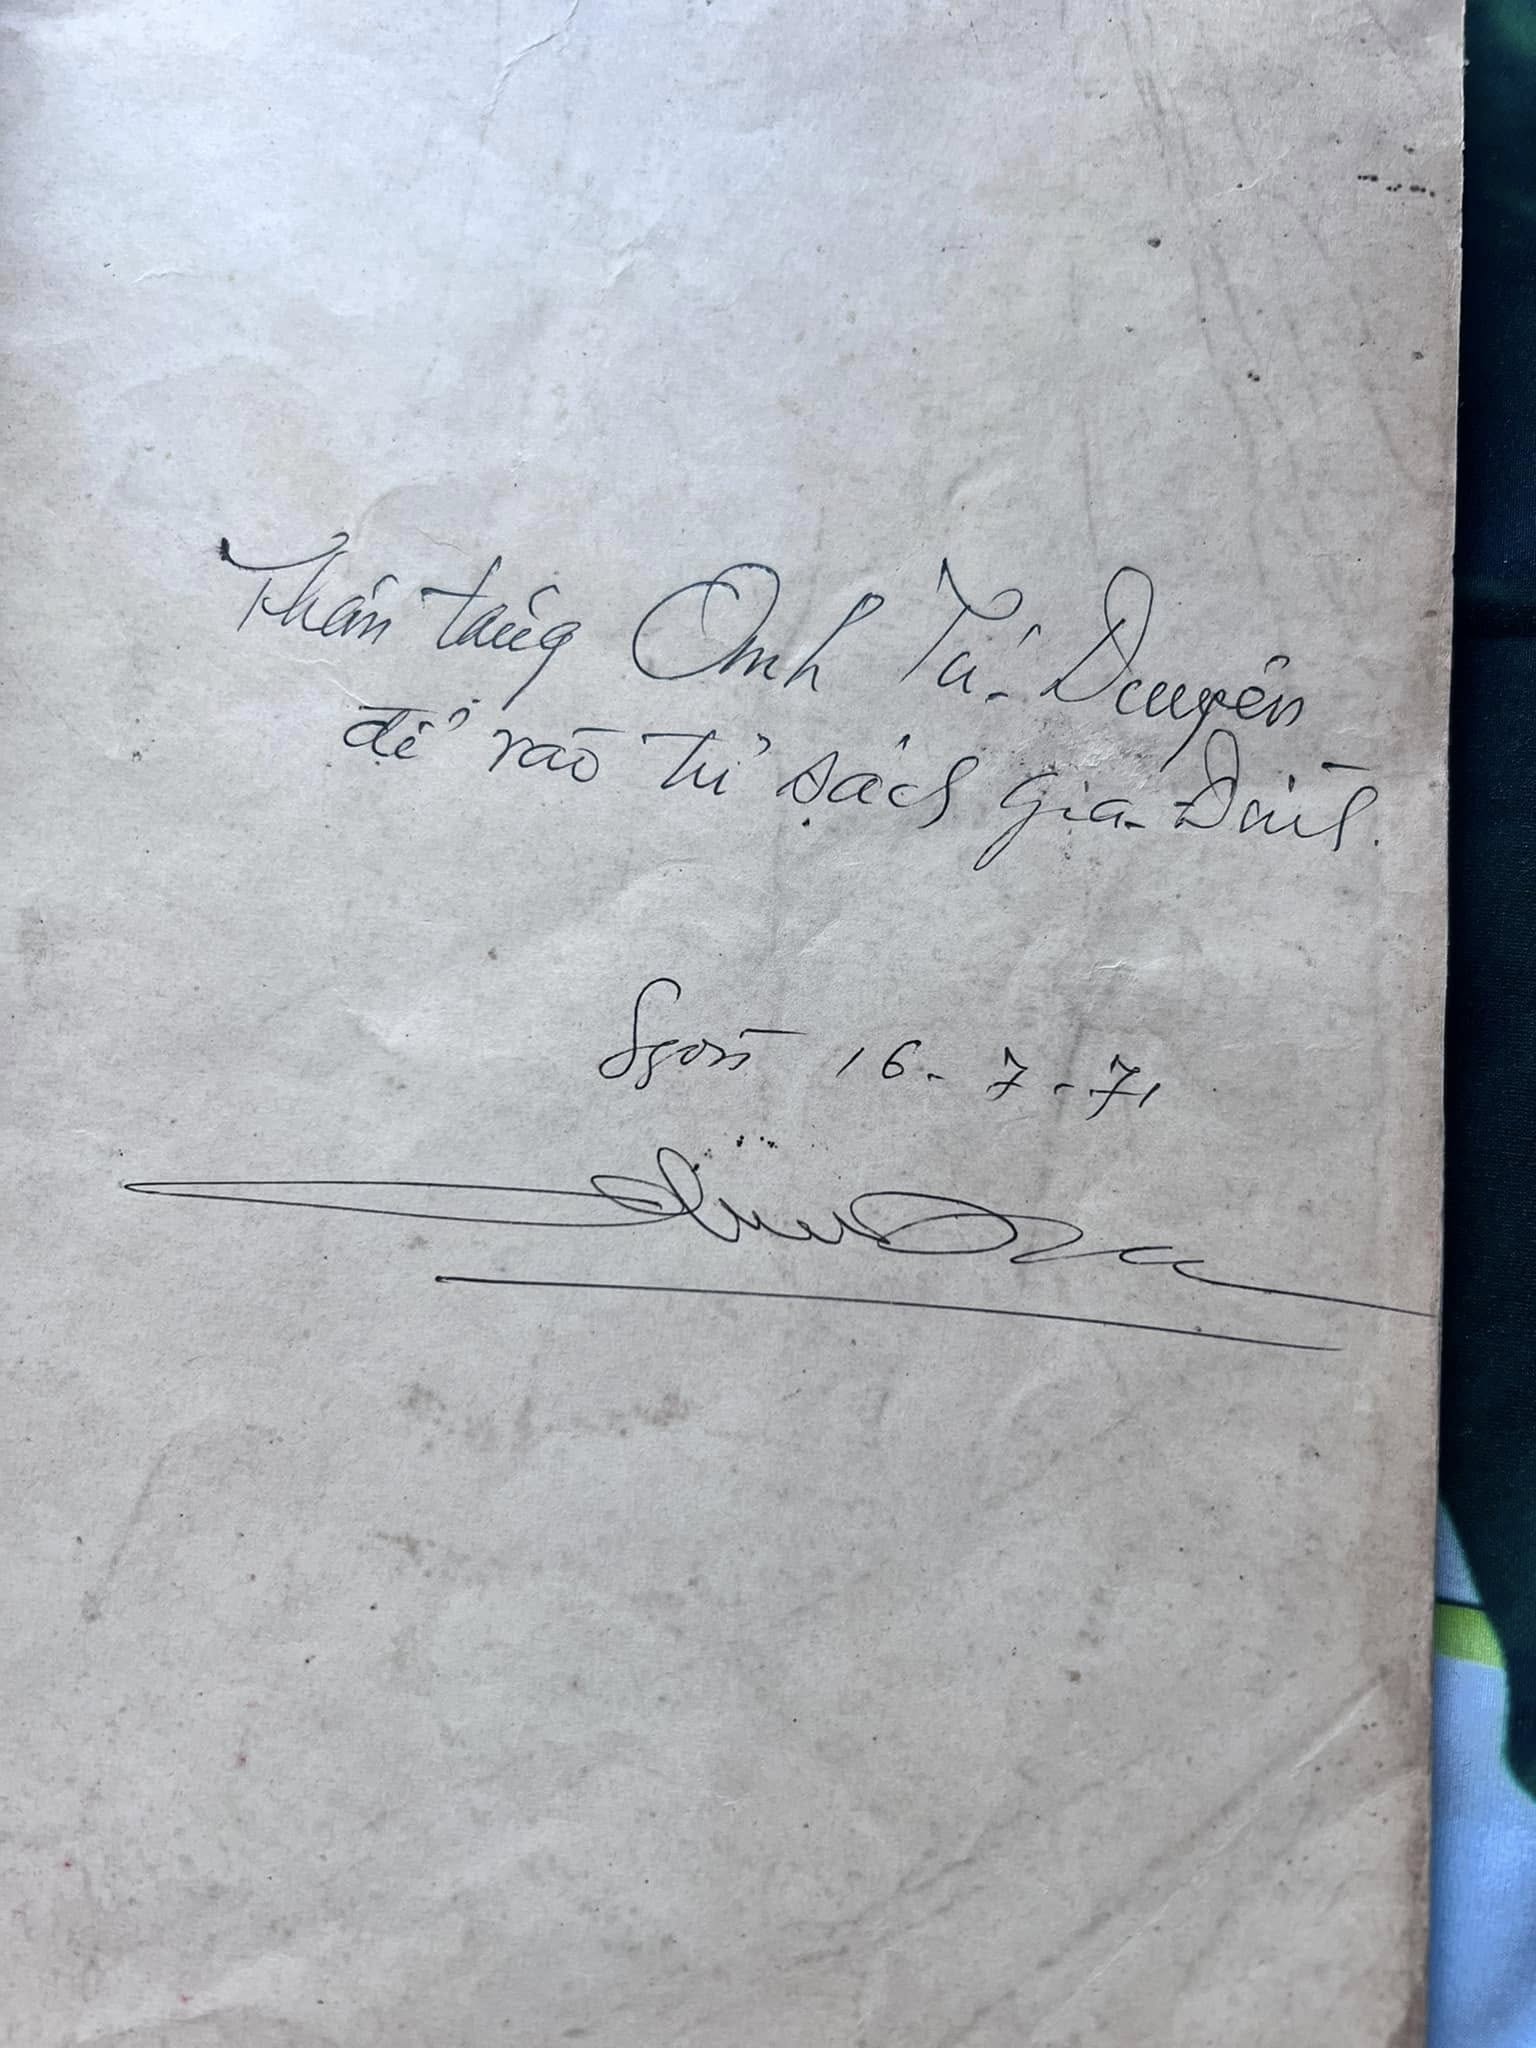 Thân tặng Anh Tú-Duyên
để vào tủ sách gia-Đình.
Sgòn 16-7-71